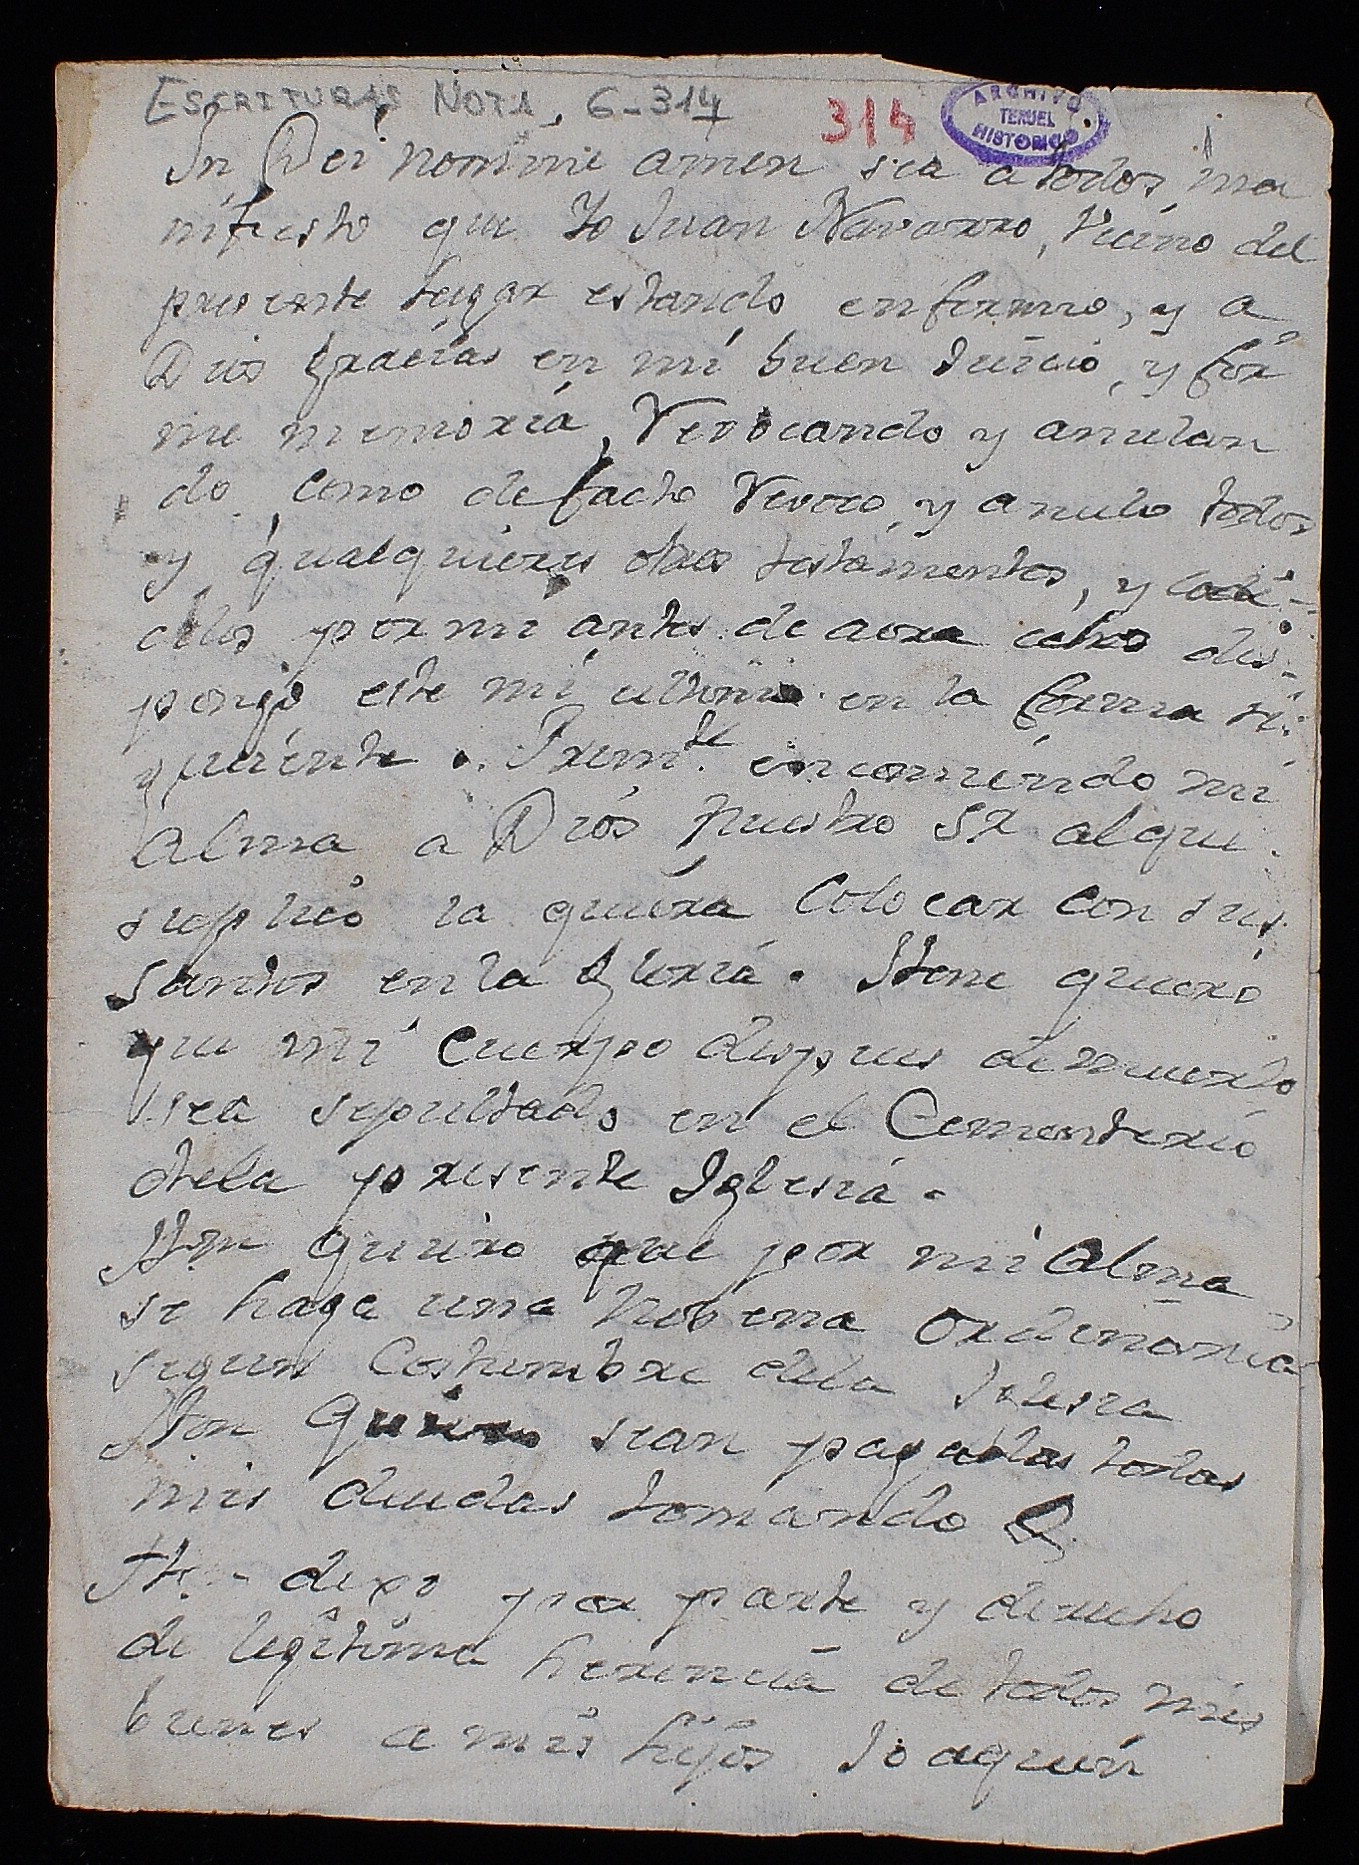 ESCRITURAS NOTA, 6-314
314
ARCHIVO
TERUEL
HISTORICO
1
In Dei nomine amen sea a todos ma
nifiesto que Yo Juan Navarro, Vecino del
presente lugar estando enfermo, y a
Dios gracias en mi buen Juicio, y for
me memoria, Revocando y anulan
do, como de facto Revoco, y anulo todos
y qualquieres otros testamentos, y codi-
cilos por mi antes de aora echos dis-
pongo este mi ultimo en la forma si-
guiente. Primte. encomiendo mi
alma a Dios nuestro Sr alque
suplico la quiera Colocar con sus
Santos en la Gloria. Item quiero
que mi Cuerpo despues de muerto
sea sepultado en el Cementerio
dela presente Iglesia.
Item quiero que por mi Alma
se haga una Nobena Ordinaria
segun Costumbre dela Iglesia
Item Quiero sean pagadas todas
mis deudas tomando
Ite- dexo por parte y derecho
de legitima herencia de todos mis
bienes a mis hijos Joaquin